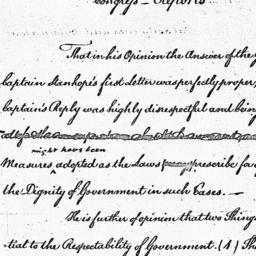 Congress – Reports
That in his Opinion the Answer of the
Captain Stanhope's first Letter was perfectly proper,
Captain's Reply was highly disrespectful and being
might have been
Measures adopted as the Laws prescribe for
the Dignity of Government in such Cases. —
He is further of opinion that two Things
tial to the Respectability of Government. (1) Tha